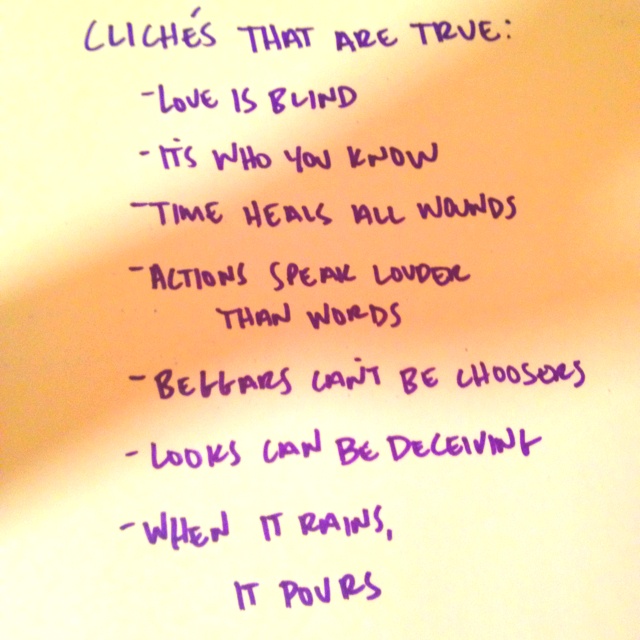 CLICHÉS THAT ARE TRUE:
- LOVE IS BLIND
- IT'S WHO YOU KNOW
- TIME HEALS ALL WOUNDS
- ACTIONS SPEAK LOUDER
THAN WORDS
- BEGGARS CAN'T BE CHOOSERS
- LOOKS CAN BE DECEIVING
- WHEN IT RAINS,
IT POURS